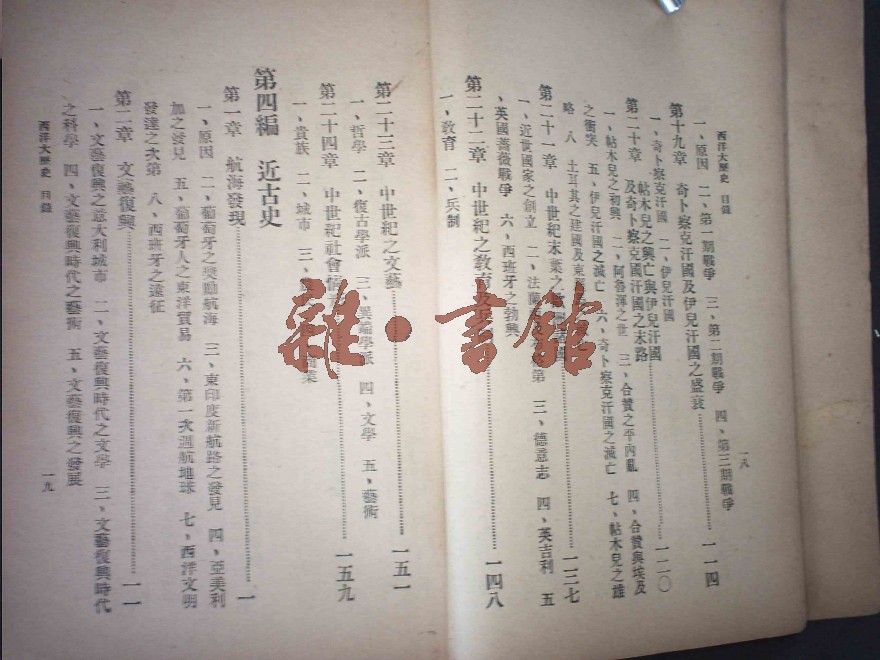 西洋大歷史 目錄
一八
一、原因 二、第一期戰爭 三、第二期戰爭 四、第三期戰爭
第十九章 奇卜察克汗國及伊兒汗國之盛衰 一一四
一、奇卜察克汗國 二、伊兒汗國
第二十章 帖木兒之興亡與伊兒汗國及奇卜察克國汗國之末路 一二〇
一、帖木兒之初興 二、阿魯渾之世 三、合贊之平內亂 四、合贊與埃及
之衝突 五、伊兒汗國之滅亡 六、奇卜察克汗國之滅亡 七、帖木兒之雄
略 八、土耳其之建國及東
第二十一章 中世紀末葉之 一三七
一、近世國家之創立 二、法蘭 第 三、德意志 四、英吉利 五
、英國薔薇戰爭 六、西班牙之勃興
第二十二章 中世紀之教育及兵制 一四八
一、教育 二、兵制
第二十三章 中世紀之文藝 一五一
一、哲學 二、復古學派 三、異端學派 四、文學 五、藝術
第二十四章 中世紀社會情 一五九
一、貴族 二、城市 三、 業
第四編 近古史
第一章 航海發現 一
一、原因 二、葡萄牙之獎勵航海 三、東印度新航路之發見 四、亞美利
加之發見 五、葡萄牙人之東洋貿易 六、第一次週航地球 七、西洋文明
發達之次第 八、西班牙之遠征
第二章 文藝復興 一一
一、文藝復興之意大利城市 二、文藝復興時代之文學 三、文藝復興時代
之科學 四、文藝復興時代之藝術 五、文藝復興之發展
西洋大歷史 目錄
一九
雜·書館